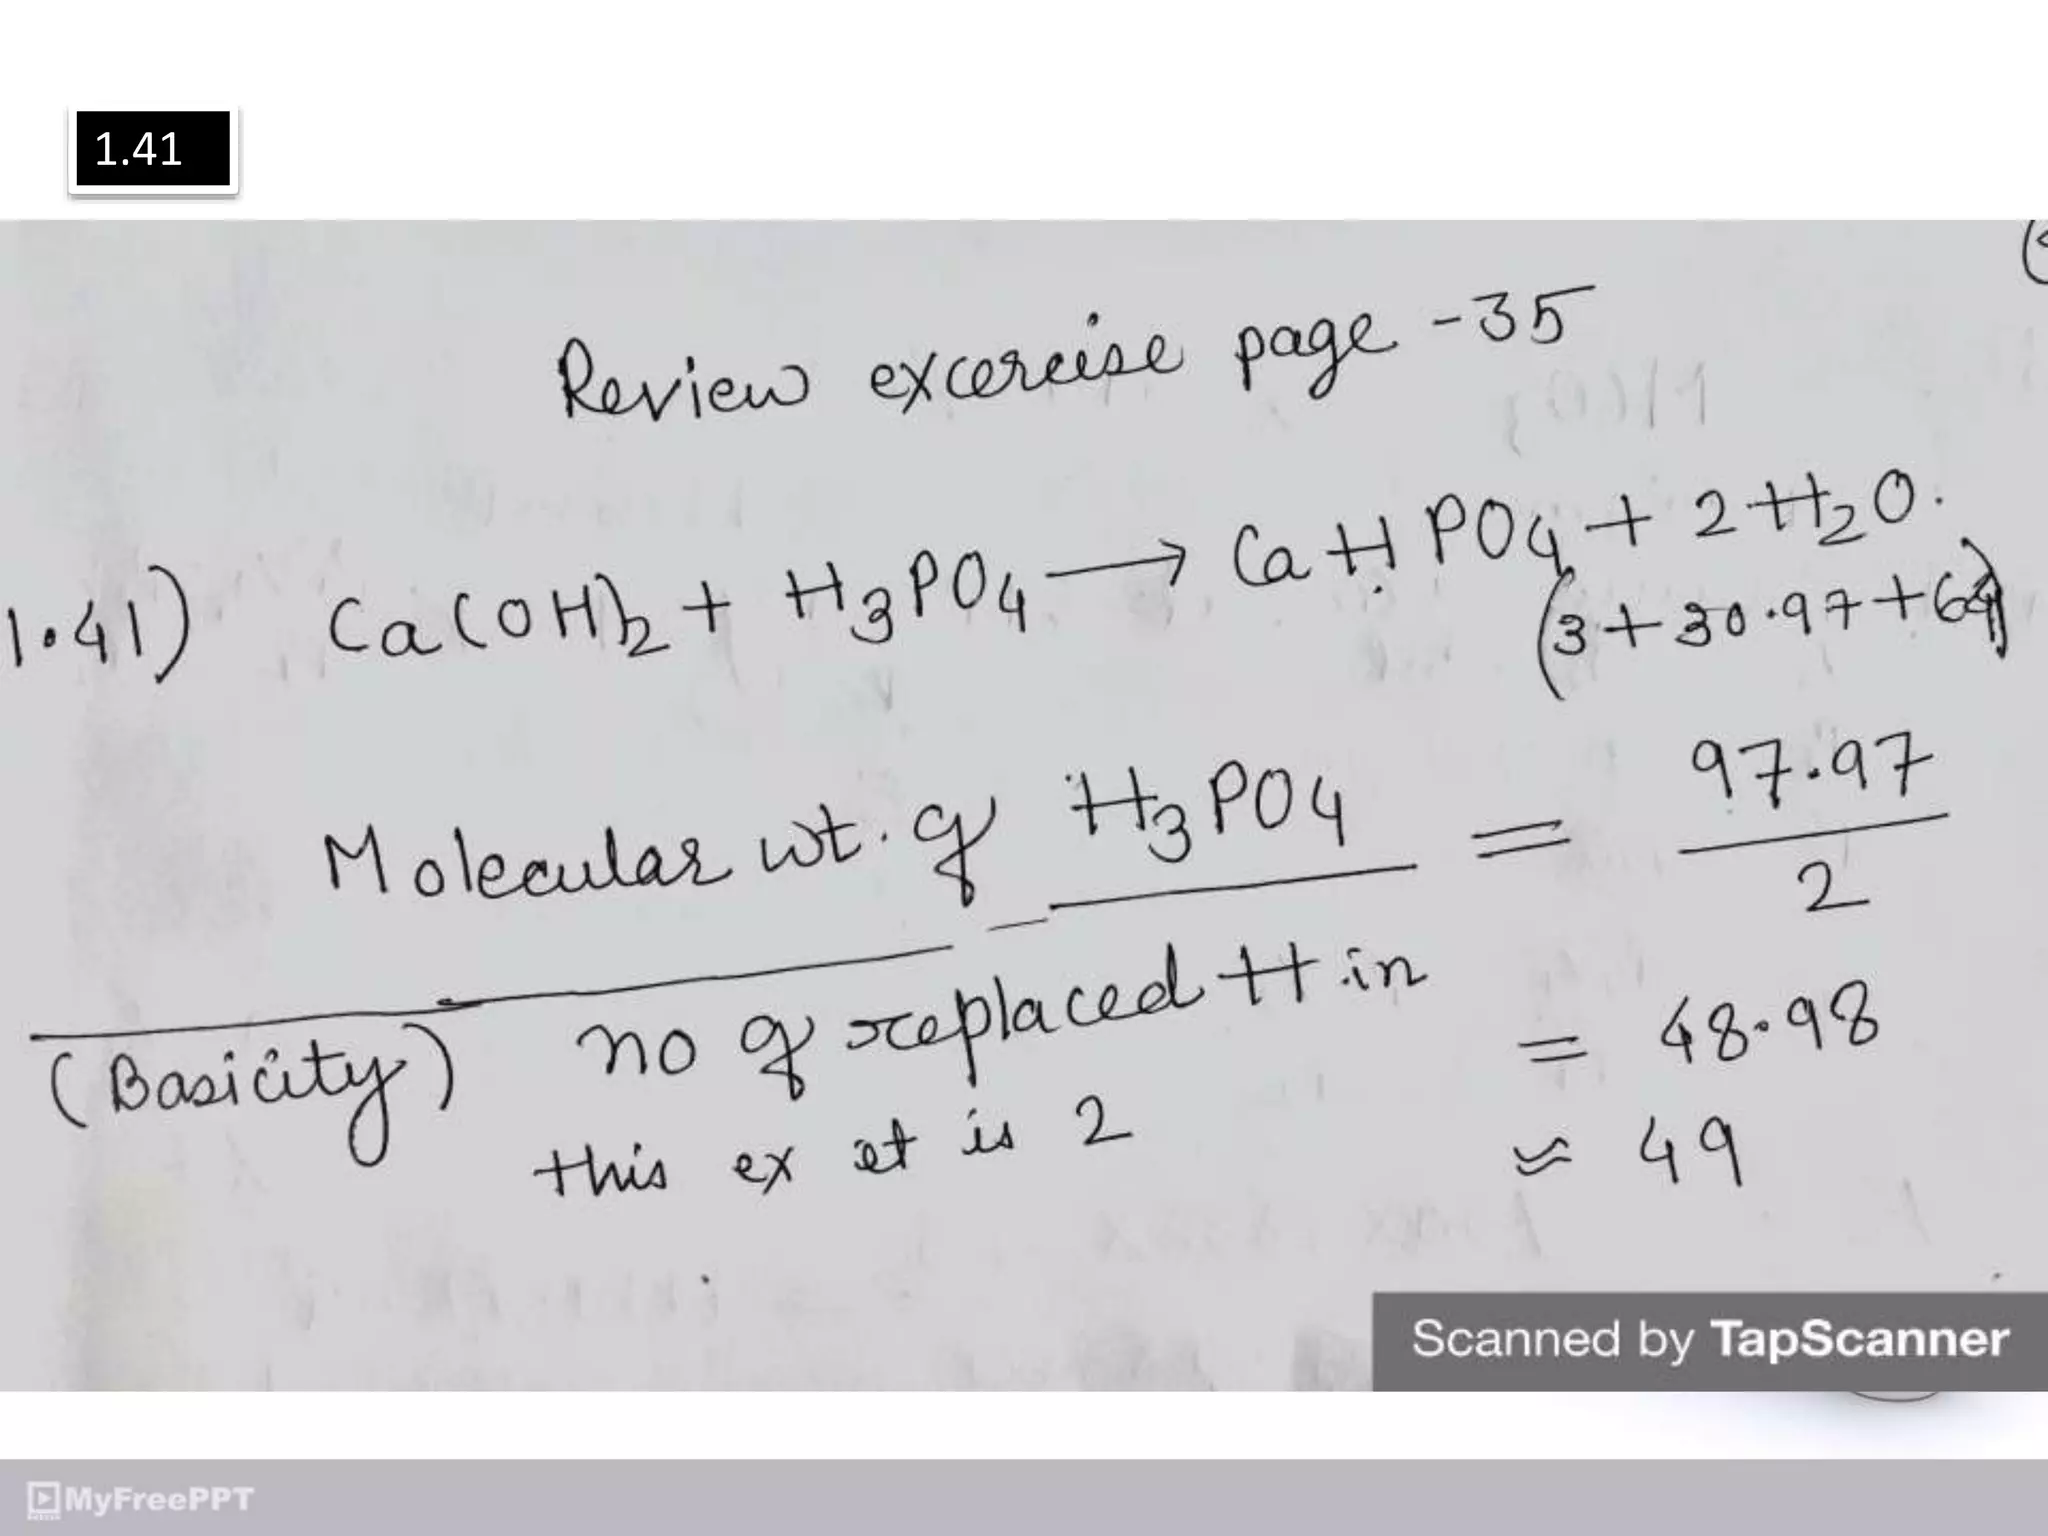 1.41
Review excercise page - 35
1.41) Ca(OH)2 + H3PO4 → CaHPO4 + 2H2O.
(3+30.97+64)
Molecular wt. of H3PO4 = 97.97
(Basicity) no of replaced H in 2
this ex et is 2 = 48.98
≈ 49
Scanned by TapScanner
MyFreePPT